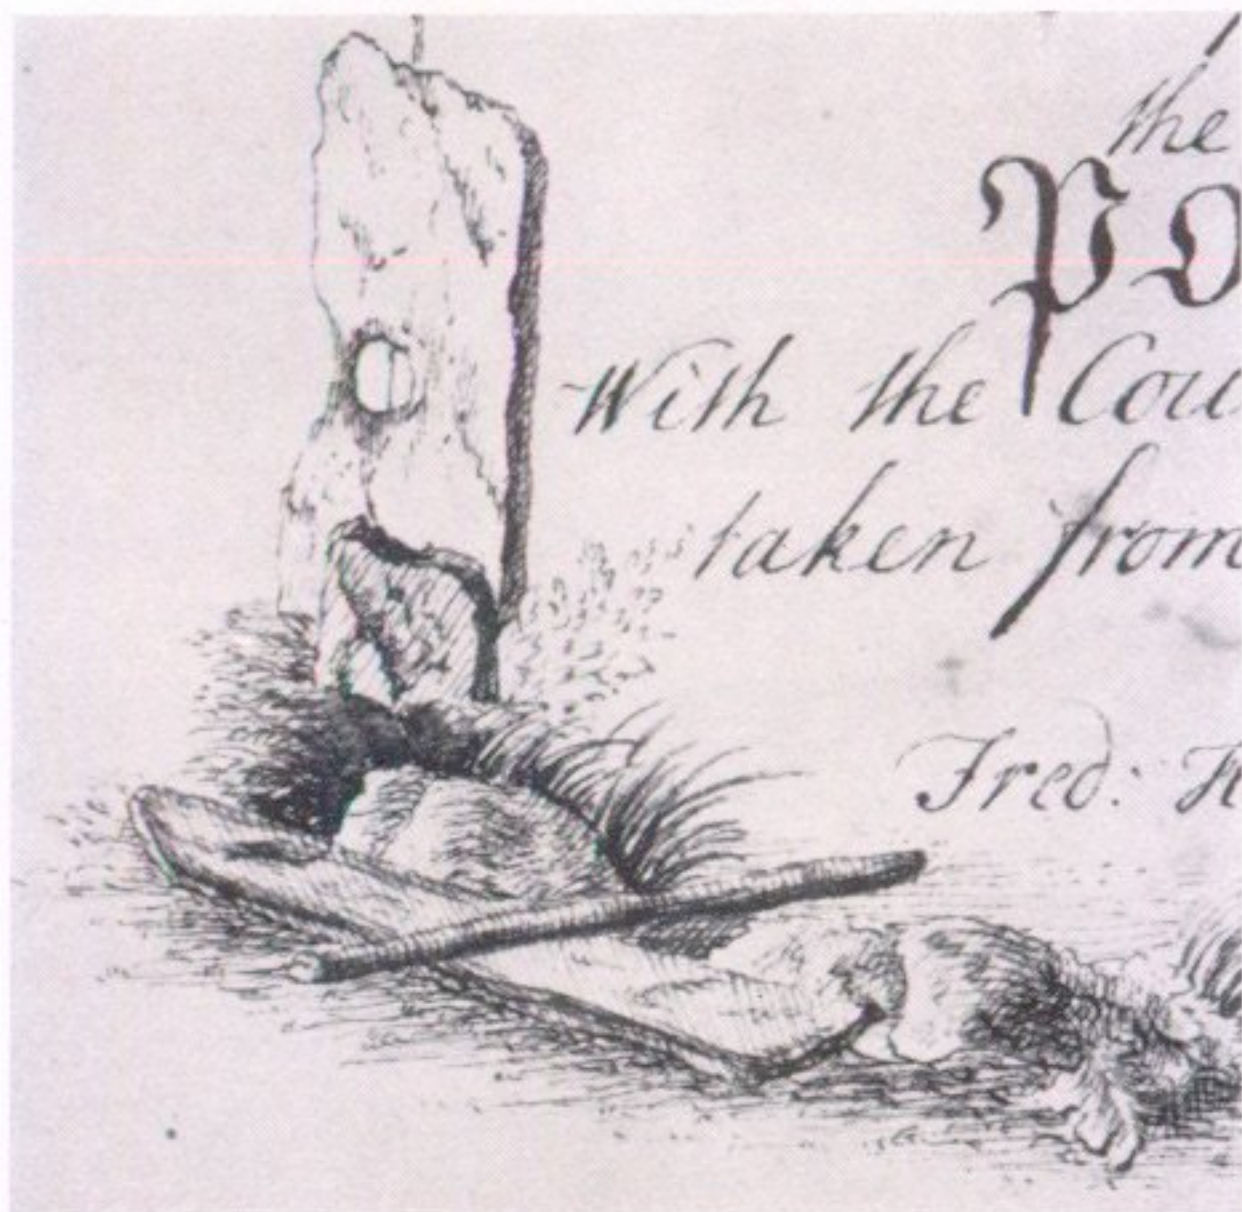 the
Po
With the Cou
taken from
Fred: